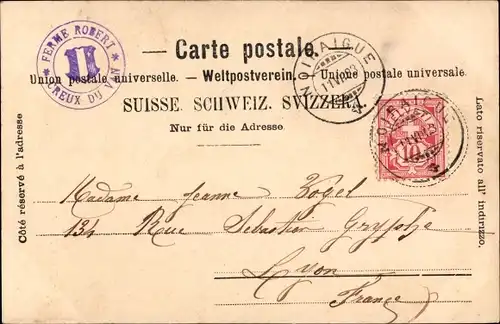 FERME ROBERT
CREUX DU VAN
Carte postale.
Union postale universelle. — Weltpostverein. — Unione postale universale.
SUISSE. SCHWEIZ. SVIZZERA.
Nur für die Adresse
Côté réservé à l'adresse
Lato riservato all' indirizzo.
NOIRAIGUE
NOIRAIGUE
10
Madame Jeanne Vogel
134 Rue Sebastien Gryphe
Lyon
France